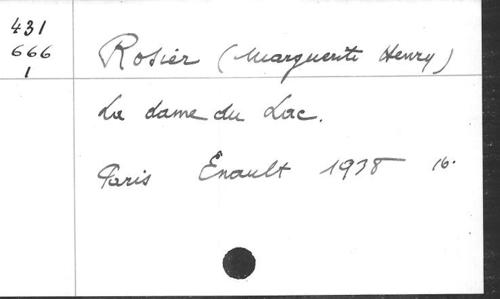 431
666
1
Rosier (Marguerite Henry)
La dame du Lac.
Paris Enault 1938 16.